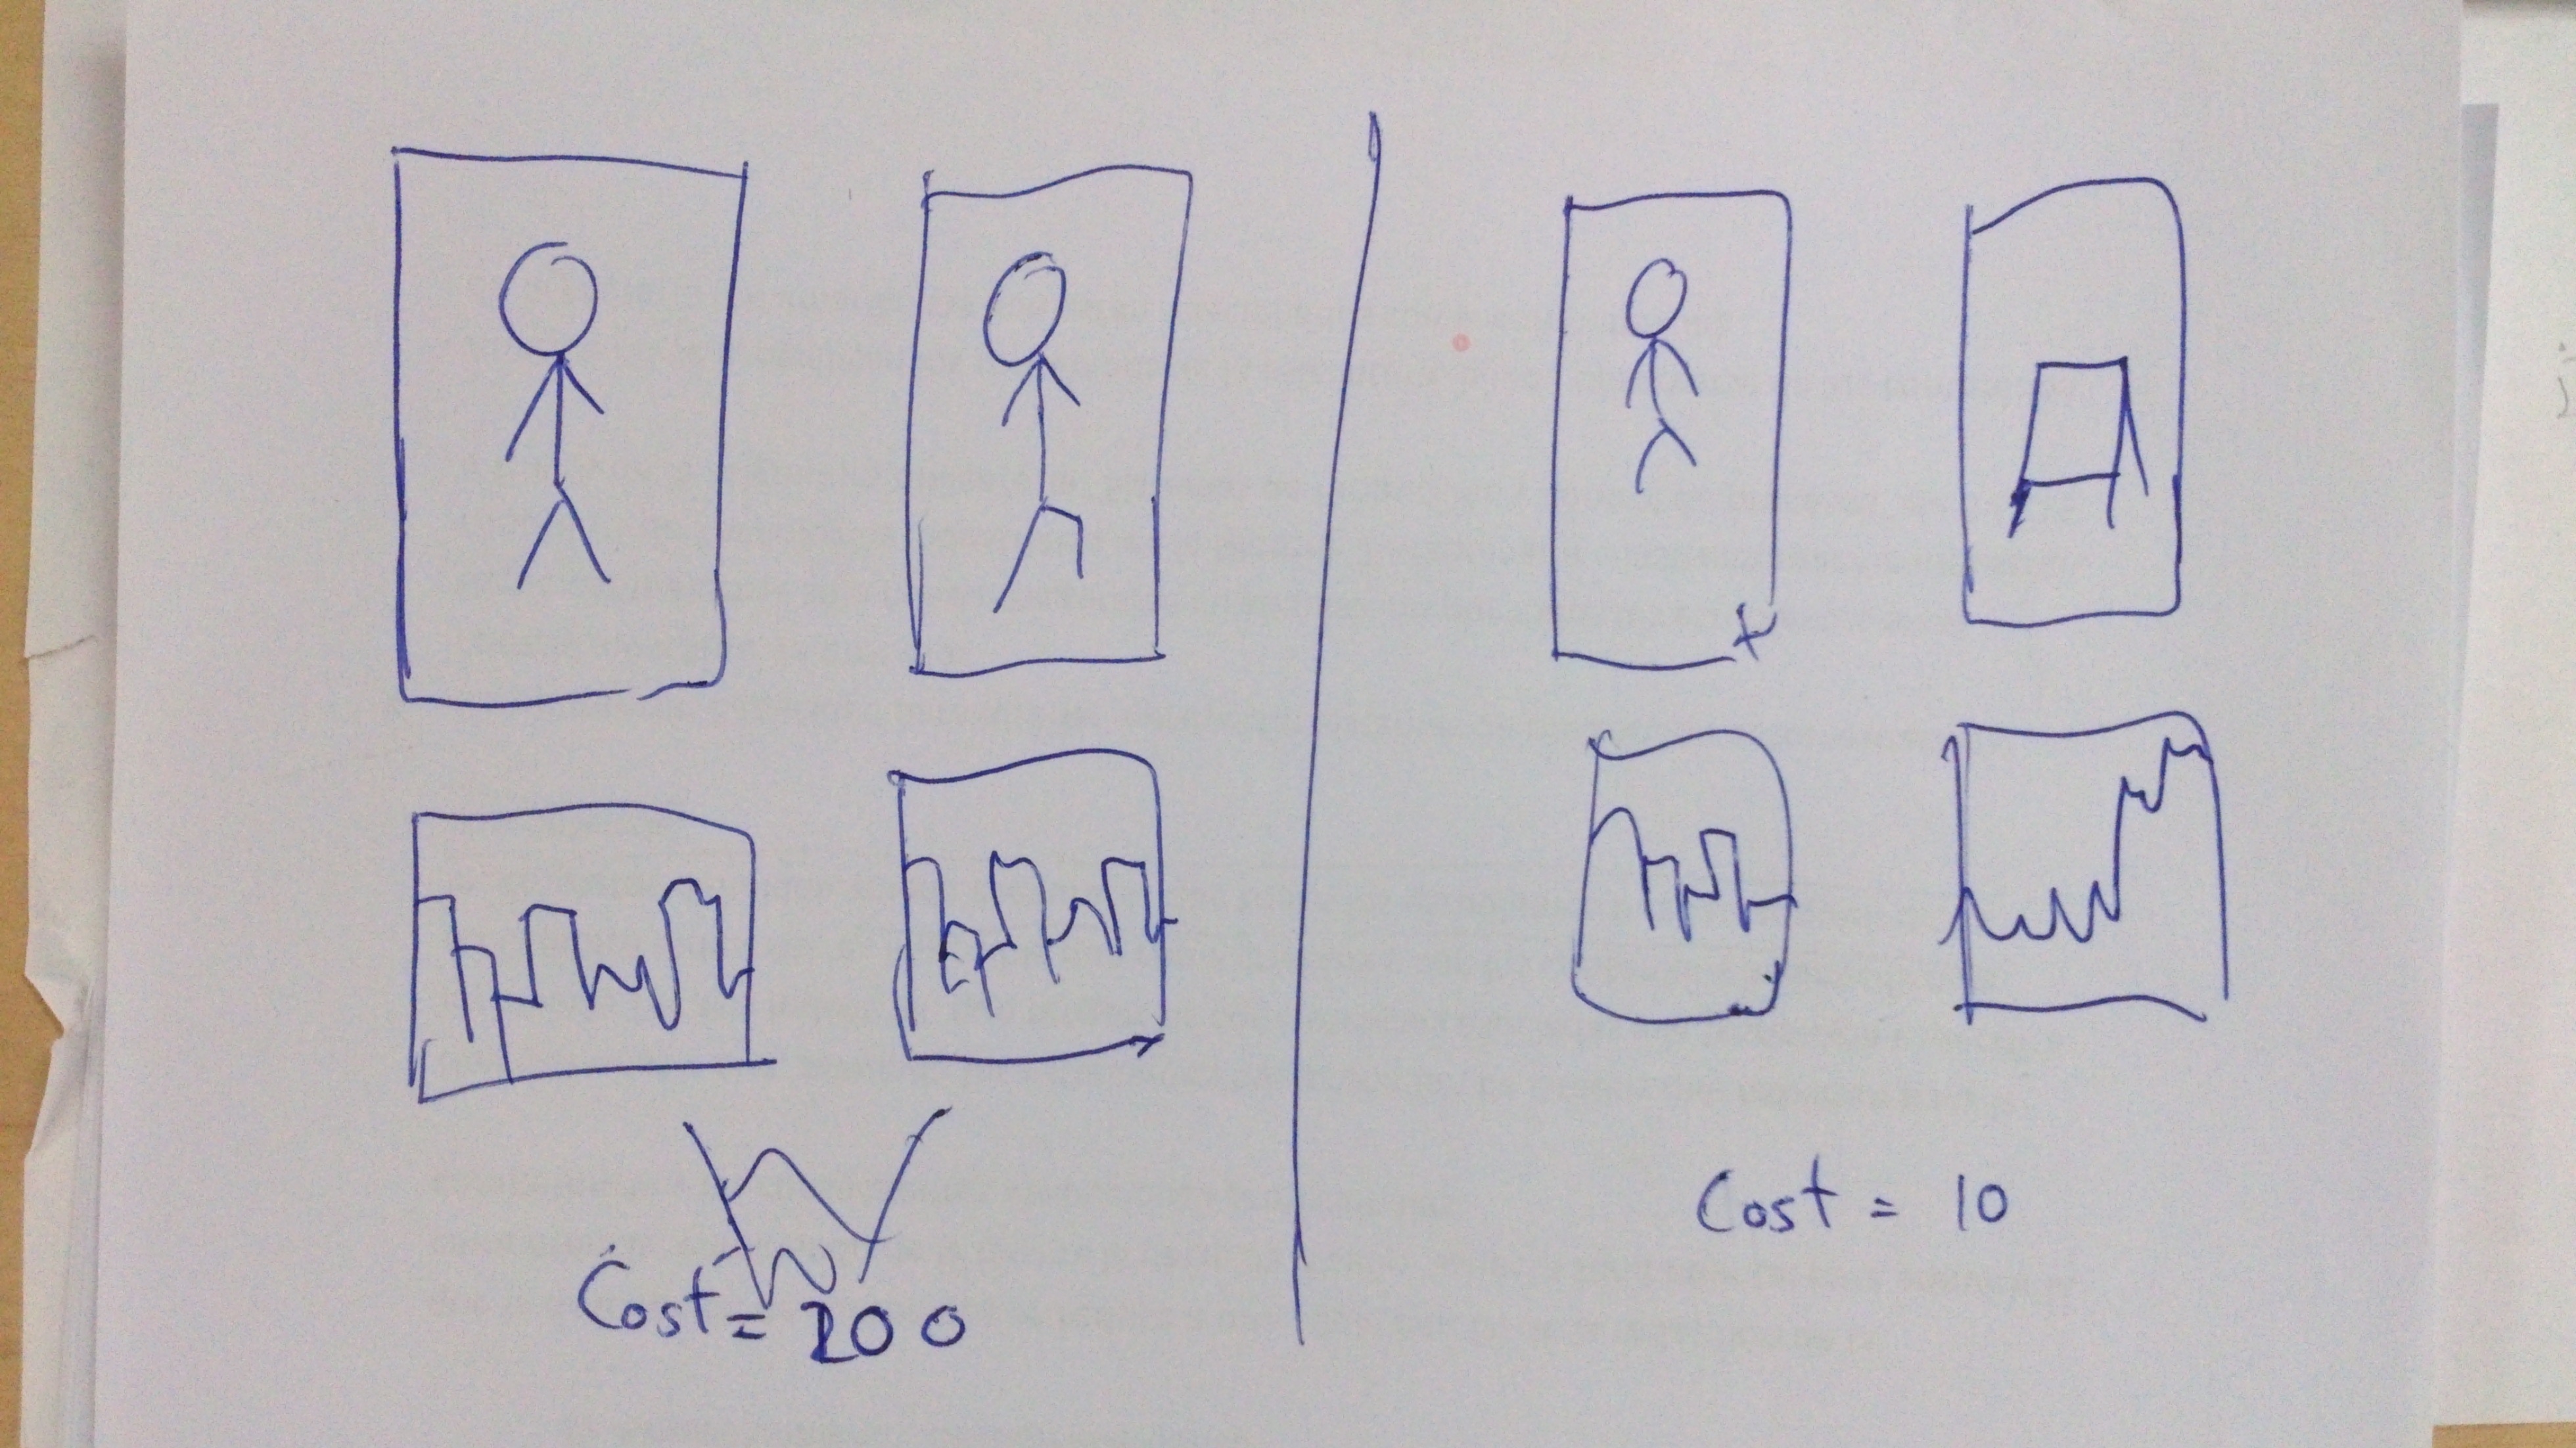 Cost = 200
Cost = 10